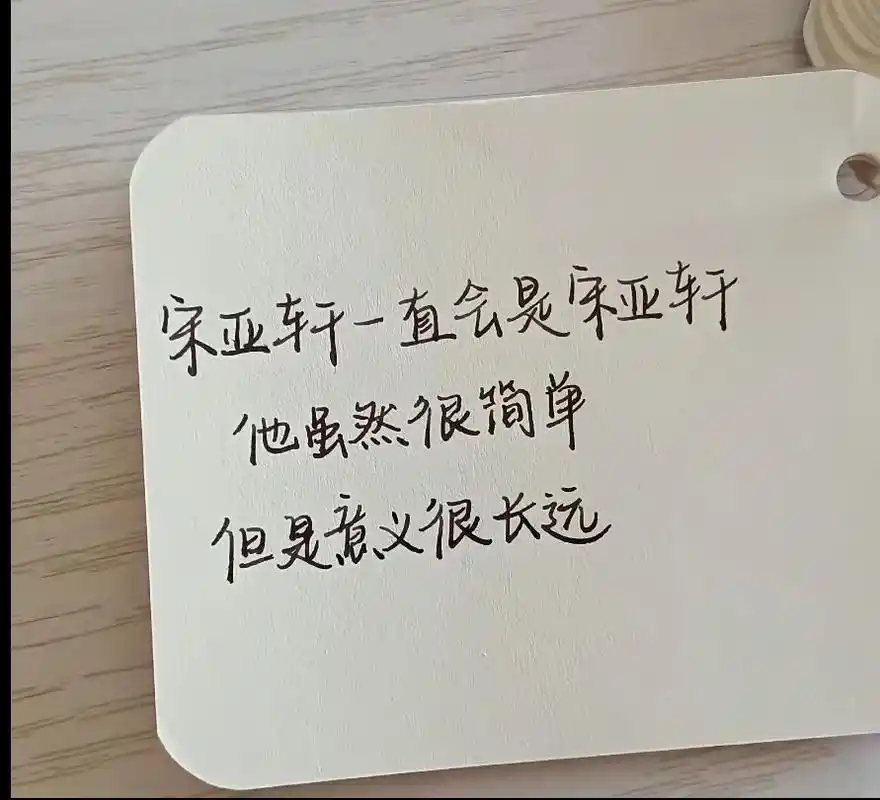 宋亚轩一直会是宋亚轩
他虽然很简单
但是意义很长远